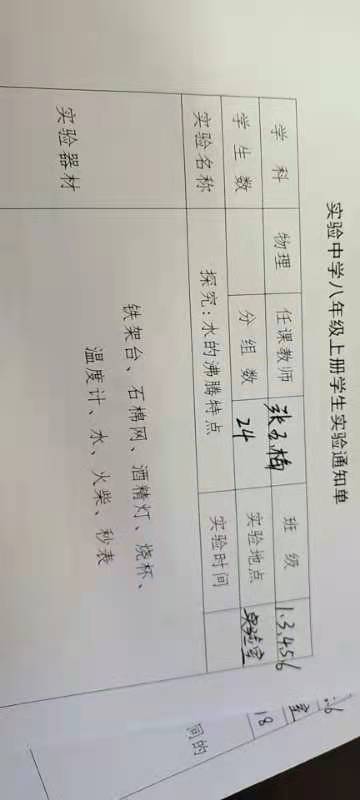 实验中学八年级上册学生实验通知单
学科 物理 任课教师 张玉梅 班级 1.3.4.5.6
学生数 分组数 24 实验地点 实验室
实验名称 探究：水的沸腾特点 实验时间
实验器材 铁架台、石棉网、酒精灯、烧杯、
温度计、水、火柴、秒表
室
18
间的